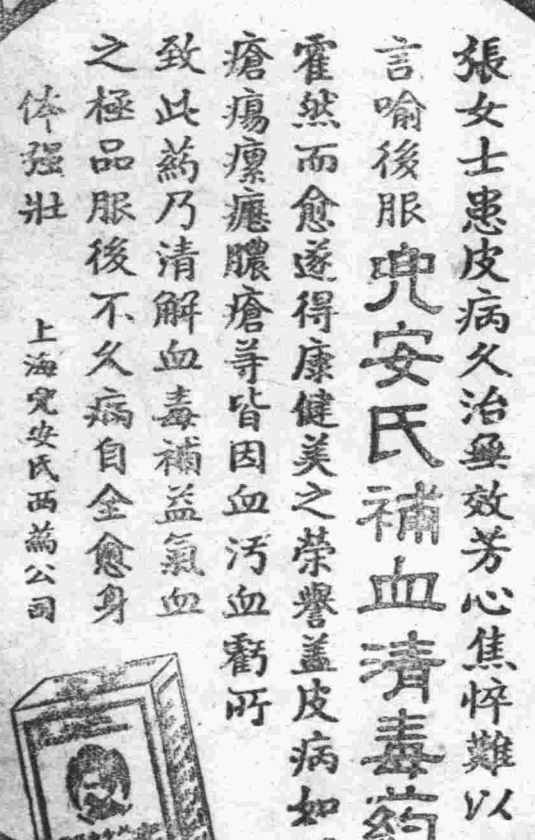 張女士患皮病久治無效芳心焦悴難以
言喻後服兜安氏補血清毒藥
霍然而愈遂得康健美之荣譽蓋皮病如
瘡瘍瘰癧膿瘡等皆因血汚血虧所
致此藥乃清解血毒補益氣血
之極品服後不久病自全愈身
体强壯
上海兜安氏西藥公司